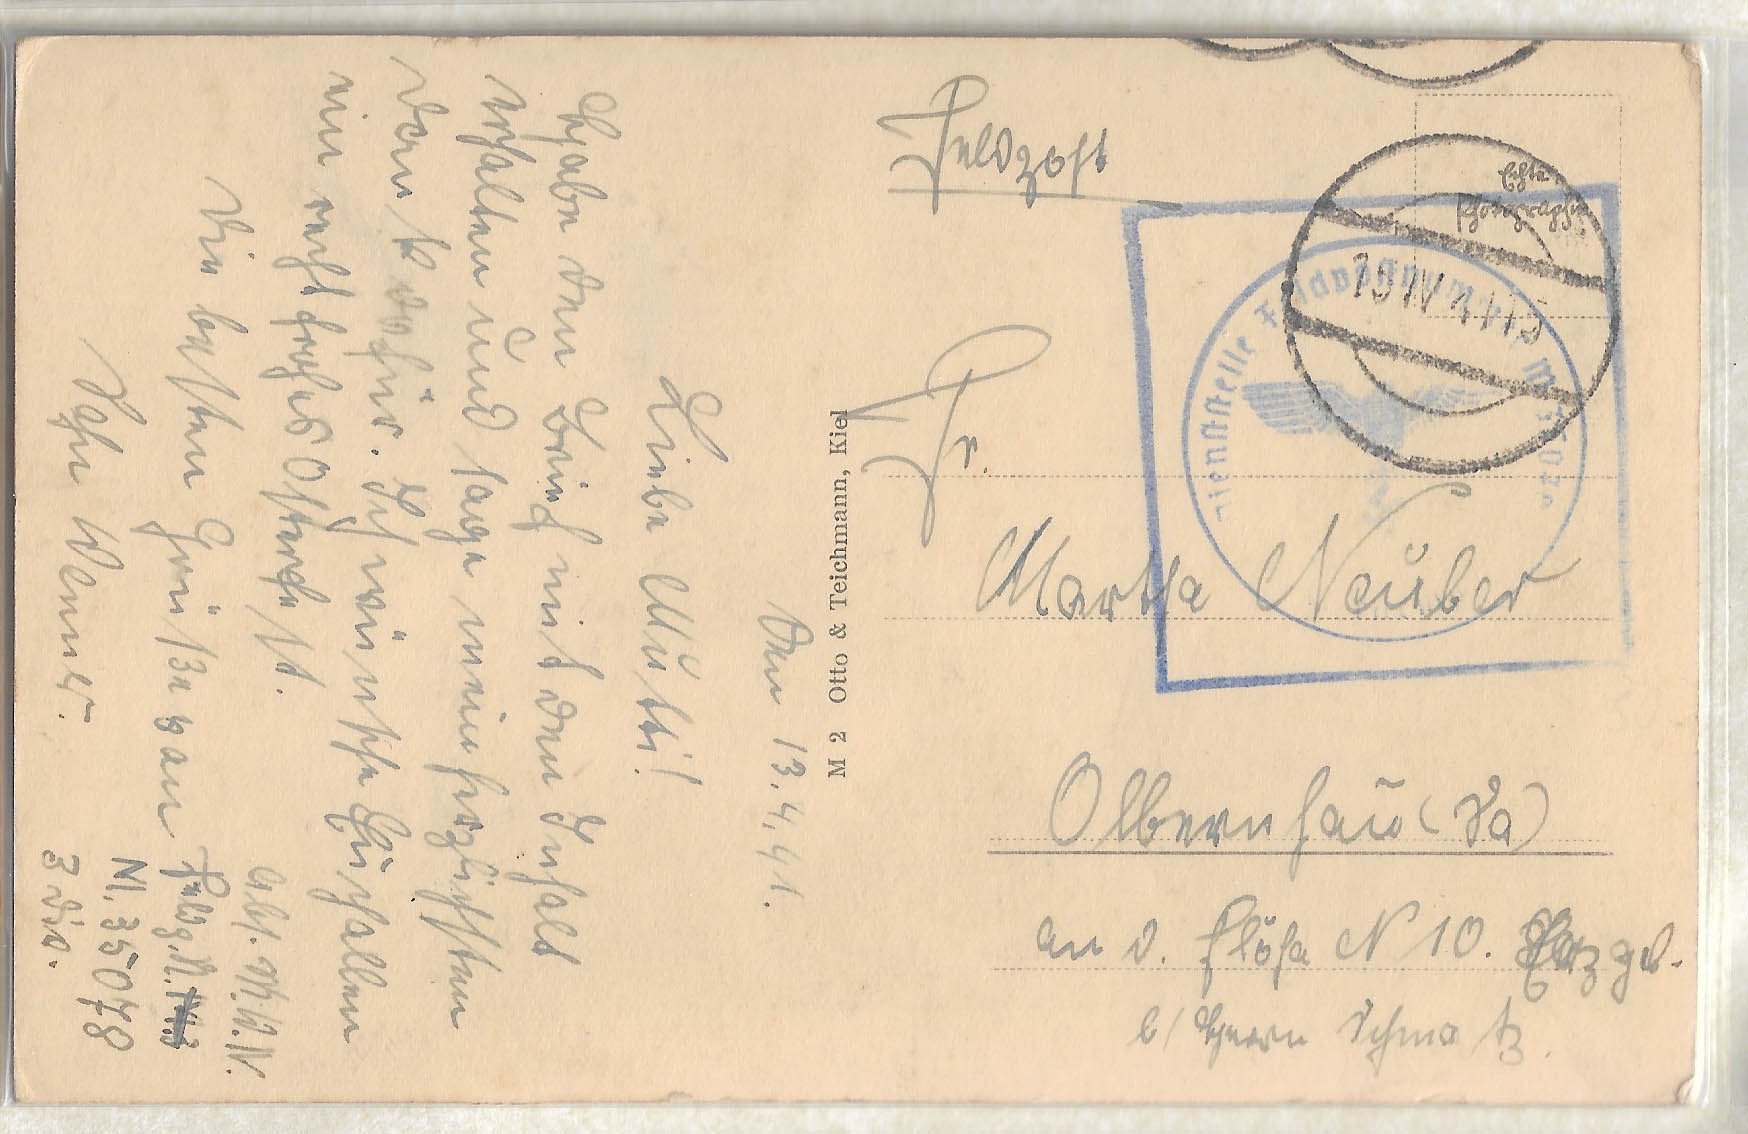 Den 13.4.41.
Liebe Mutti!
Habe den Brief mit dem Inhalt
erhalten und sage meinen herzlichsten
Dank dafür. Ich wünsche Euch allen
ein recht frohes Osterfest.
Die besten Grüße von
Werner.
Abs. W. N.
Feldp.N.
N. 35078
M 2 Otto & Teichmann, Kiel
Feldpost
Echte
Photographie
Dienststelle Feldpostnummer
Fr.
Martha Neuber
Olbernhau (Sa)
an d. Flöha N 10. Erzgeb.
b/ Herrn Schmatz.